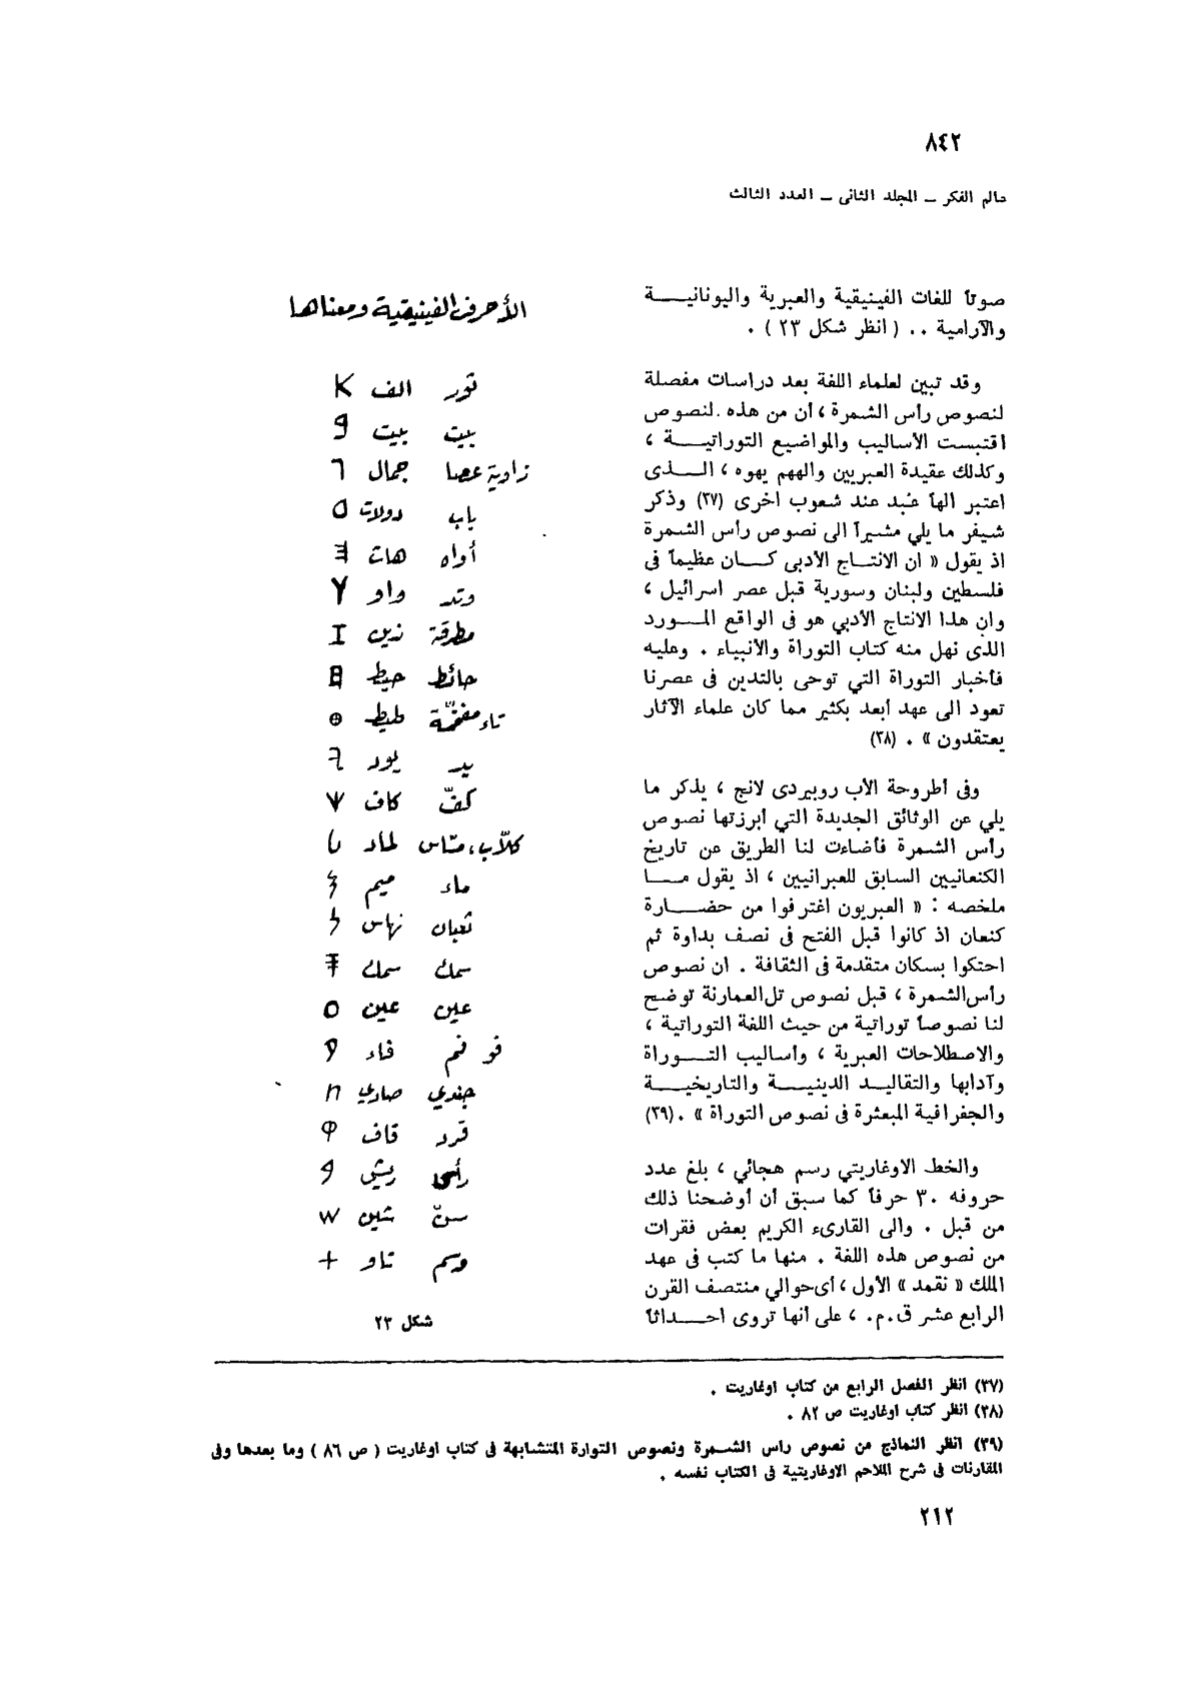 ٨٤٢
عالم الفكر ــ المجلد الثانى ــ العدد الثالث
صوتاً للغات الفينيقية والعبرية واليونانيـــة
والآرامية .. ( انظر شكل ٢٣ ) .
وقد تبين لعلماء اللغة بعد دراسات مفصلة
لنصوص رأس الشمرة ، أن من هذه النصوص
اقتبست الأساليب والمواضيع التوراتيـــة ،
وكذلك عقيدة العبريين والههم يهوه ، الـــذى
اعتبر الهاً عُبد عند شعوب اخرى (٣٧) وذكر
شيفر ما يلي مشيراً الى نصوص رأس الشمرة
اذ يقول « ان الانتــاج الأدبى كـــان عظيماً فى
فلسطين ولبنان وسورية قبل عصر اسرائيل ،
وان هذا الانتاج الأدبي هو فى الواقع المـــورد
الذى نهل منه كتاب التوراة والأنبياء . وعليه
فأخبار التوراة التي توحى بالتدين فى عصرنا
تعود الى عهد أبعد بكثير مما كان علماء الآثار
يعتقدون » . (٣٨)
وفى أطروحة الأب روبيردى لانج ، يذكر ما
يلي عن الوثائق الجديدة التي أبرزتها نصوص
رأس الشمرة فأضاءت لنا الطريق عن تاريخ
الكنعانيين السابق للعبرانيين ، اذ يقول مـــا
ملخصه : « العبريون اغترفوا من حضـــارة
كنعان اذ كانوا قبل الفتح فى نصف بداوة ثم
احتكوا بسكان متقدمة فى الثقافة . ان نصوص
رأس الشمرة ، قبل نصوص تل العمارنة توضح
لنا نصوصاً توراتية من حيث اللغة التوراتية ،
والاصطلاحات العبرية ، وأساليب التـــوراة
وآدابها والتقاليـد الدينيـــة والتاريخيـــة
والجغرافية المبعثرة فى نصوص التوراة » . (٣٩)
والخط الاوغاريتي رسم هجائي ، بلغ عدد
حروفه ٣٠ حرفاً كما سبق أن أوضحنا ذلك
من قبل . والى القارىء الكريم بعض فقرات
من نصوص هذه اللغة . منها ما كتب فى عهد
الملك « نقمد » الأول ، أى حوالي منتصف القرن
الرابع عشر ق.م. ، على أنها تروى احـــداثاً
الأحرف الفينيقية ومعناها
ثور الف K
بيت بيت 9
زاوية عصا جمال ٦
باب دولات
أواه هات
وتد واو Y
مطرقة زين I
حائط حيط
تاء مفخّمة طيط ⊕
يد يود
كفّ كاف
كلّاب، منّاس لماد
ماء ميم
ثعبان نهاس
سمك سمك
عين عين O
فو فم فاء
جندي صادي
قرد قاف φ
رأس ريش
سنّ شين W
وسم تاو +
شكل ٢٣
(٣٧) انظر الفصل الرابع من كتاب اوغاريت .
(٣٨) انظر كتاب اوغاريت ص ٨٢ .
(٣٩) انظر النماذج من نصوص راس الشـمرة ونصوص التوارة المتشابهة فى كتاب اوغاريت ( ص ٨٦ ) وما بعدها وفى
المقارنات فى شرح الملاحم الاوغاريتية فى الكتاب نفسه .
٢١٢